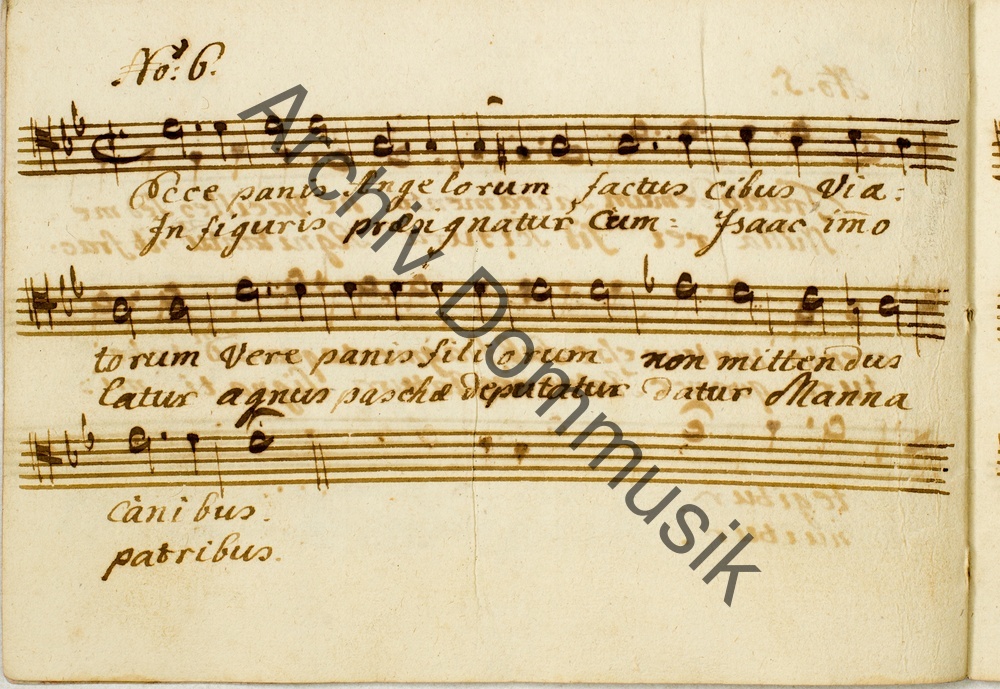 No. 6.
Ecce panis Angelorum factus cibus Via:
In figuris præsignatur Cum= Isaac im̄o
torum Vere panis filiorum non mittendus
latur agnus paschæ deputatur datur Manna
canibus.
patribus.
Archiv Dommusik